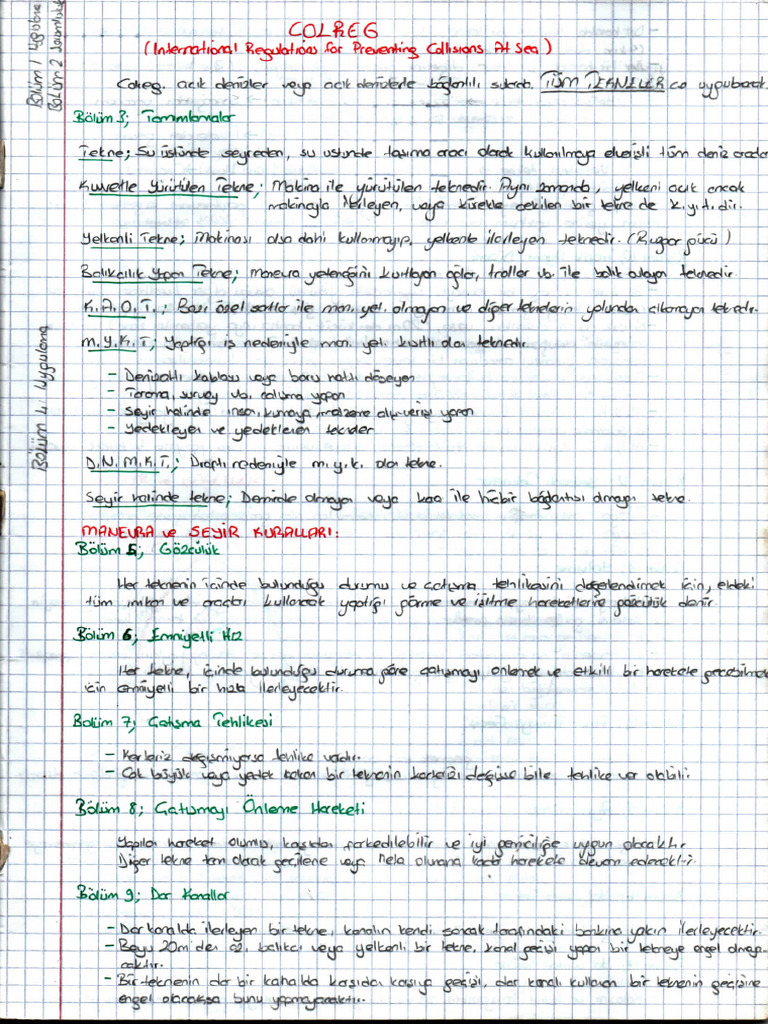 COLREG
(International Regulations for Preventing Collisions At Sea)
Bölüm 1 Uygulama
Bölüm 2 Sorumluluk
Colreg. açık denizler veya açık denizlerle bağlantılı sularda TÜM TEKNELER ce uygulanacak
Bölüm 3; Tanımlamalar
Tekne; Su üstünde seyreden, su üstünde taşıma aracı olarak kullanılmaya elverişli tüm deniz araçları
Kuvvetle Yürütülen Tekne; Makina ile yürütülen teknedir. Aynı zamanda, yelkeni açık ancak
makinayla ilerleyen, veya kürekle çekilen bir tekne de k.y.t.dir.
Yelkenli Tekne; Makinası olsa dahi kullanmayıp, yelkenle ilerleyen teknedir. (Rüzgar gücü)
Balıkçılık Yapan Tekne; manevra yeteneğini kısıtlayan ağlar, trollar vb. ile balık avlayan teknedir
K.A.O.T.; Bazı özel şartlar ile man. yet. olmayan ve diğer teknelerin yolundan çıkamayan teknedir.
M.Y.K.T; Yaptığı iş nedeniyle man. yet. kısıtlı olan teknedir.
- Denizaltı kablosu veya boru hattı döşeyen
- Tarama, survey vb. çalışma yapan
- Seyir halinde insan, kumanya, malzeme alışverişi yapan
- Yedekleyen ve yedeklenen tekneler
Bölüm 4: Uygulama
D.N.M.K.T.; Draftı nedeniyle m.y.k. olan tekne.
Seyir halinde tekne; Demirde olmayan veya kara ile hiçbir bağlantısı olmayan tekne.
MANEVRA ve SEYİR KURALLARI:
Bölüm 5; Gözcülük
Her teknenin içinde bulunduğu durumu ve çatışma tehlikesini değerlendirmek için, eldeki
tüm imkan ve araçları kullanarak yaptığı görme ve işitme hareketlerine gözcülük denir.
Bölüm 6; Emniyetli Hız
Her tekne, içinde bulunduğu duruma göre çatışmayı önlemek ve etkili bir harekete geçebilmek
için emniyetli bir hızla ilerleyecektir.
Bölüm 7; Çatışma Tehlikesi
- Kerteriz değişmiyorsa tehlike vardır.
- Çok büyük veya yedek çeken bir teknenin kerterizi değişse bile tehlike var olabilir.
Bölüm 8; Çatışmayı Önleme Hareketi
Yapılan hareket olumlu, karşıdan farkedilebilir ve iyi gemiciliğe uygun olacaktır.
Diğer tekne tam olarak geçilene veya neta olunana kadar harekete devam edilecektir.
Bölüm 9; Dar Kanallar
- Dar kanalda ilerleyen bir tekne, kanalın kendi sancak tarafındaki bankına yakın ilerleyecektir.
- Boyu 20m'den az, balıkçı veya yelkenli bir tekne, kanal geçişi yapan bir tekneye engel olmaya-
caktır.
- Bir teknenin dar bir kanalda karşıdan karşıya geçişi, dar kanalı kullanan bir teknenin geçişine
engel olacaksa bunu yapmayacaktır.